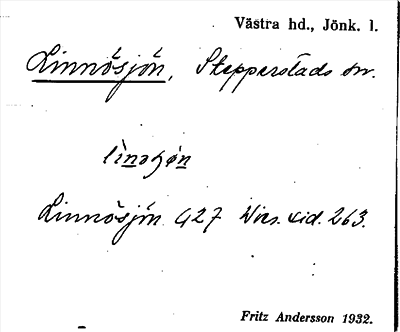 Västra hd., Jönk. l.
Linnösjön, Stepperstads sn.
lìnọʃǿn
Linnösjön 427 Wies. sid. 263.
Fritz Andersson 1932.